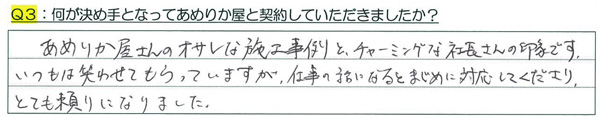 Q3：何が決め手となってあめりか屋と契約していただきましたか？
あめりか屋さんのオサレな施工事例と、チャーミングな社長さんの印象です。
いつもは笑わせてもらっていますが、仕事の話になるとまじめに対応してくださり、
とても頼りになりました。